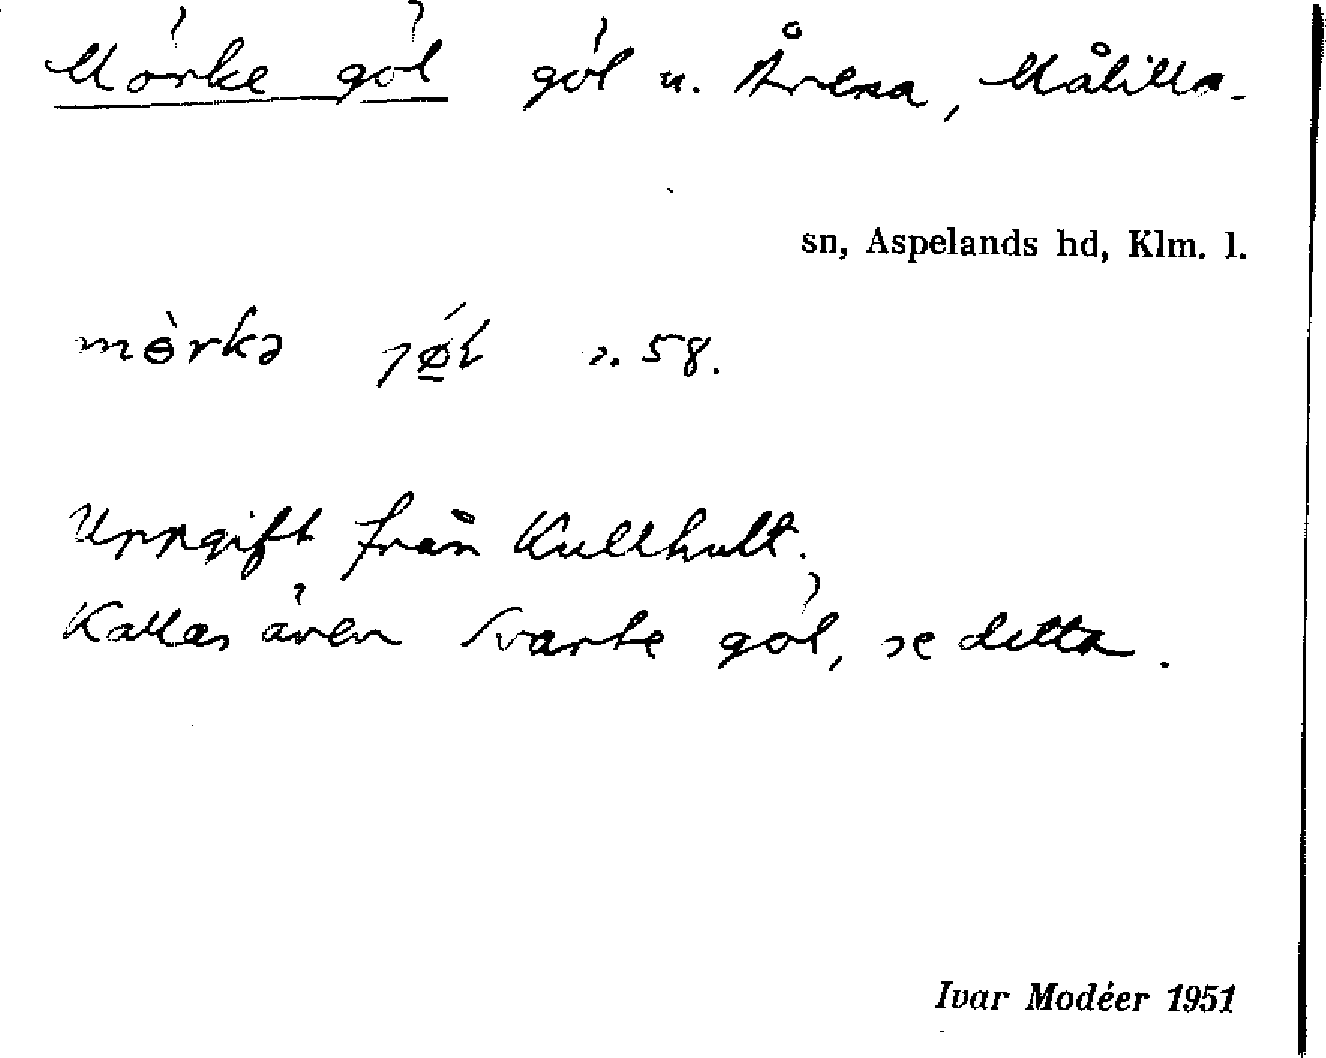 Mörke göl göl u. Årena, Målilla
sn, Aspelands hd, Klm. l.
mɵ̀rkə s. 58.
Uppgift från Kullhult.
Kallas även Svarte göl, se detta.
Ivar Modéer 1951